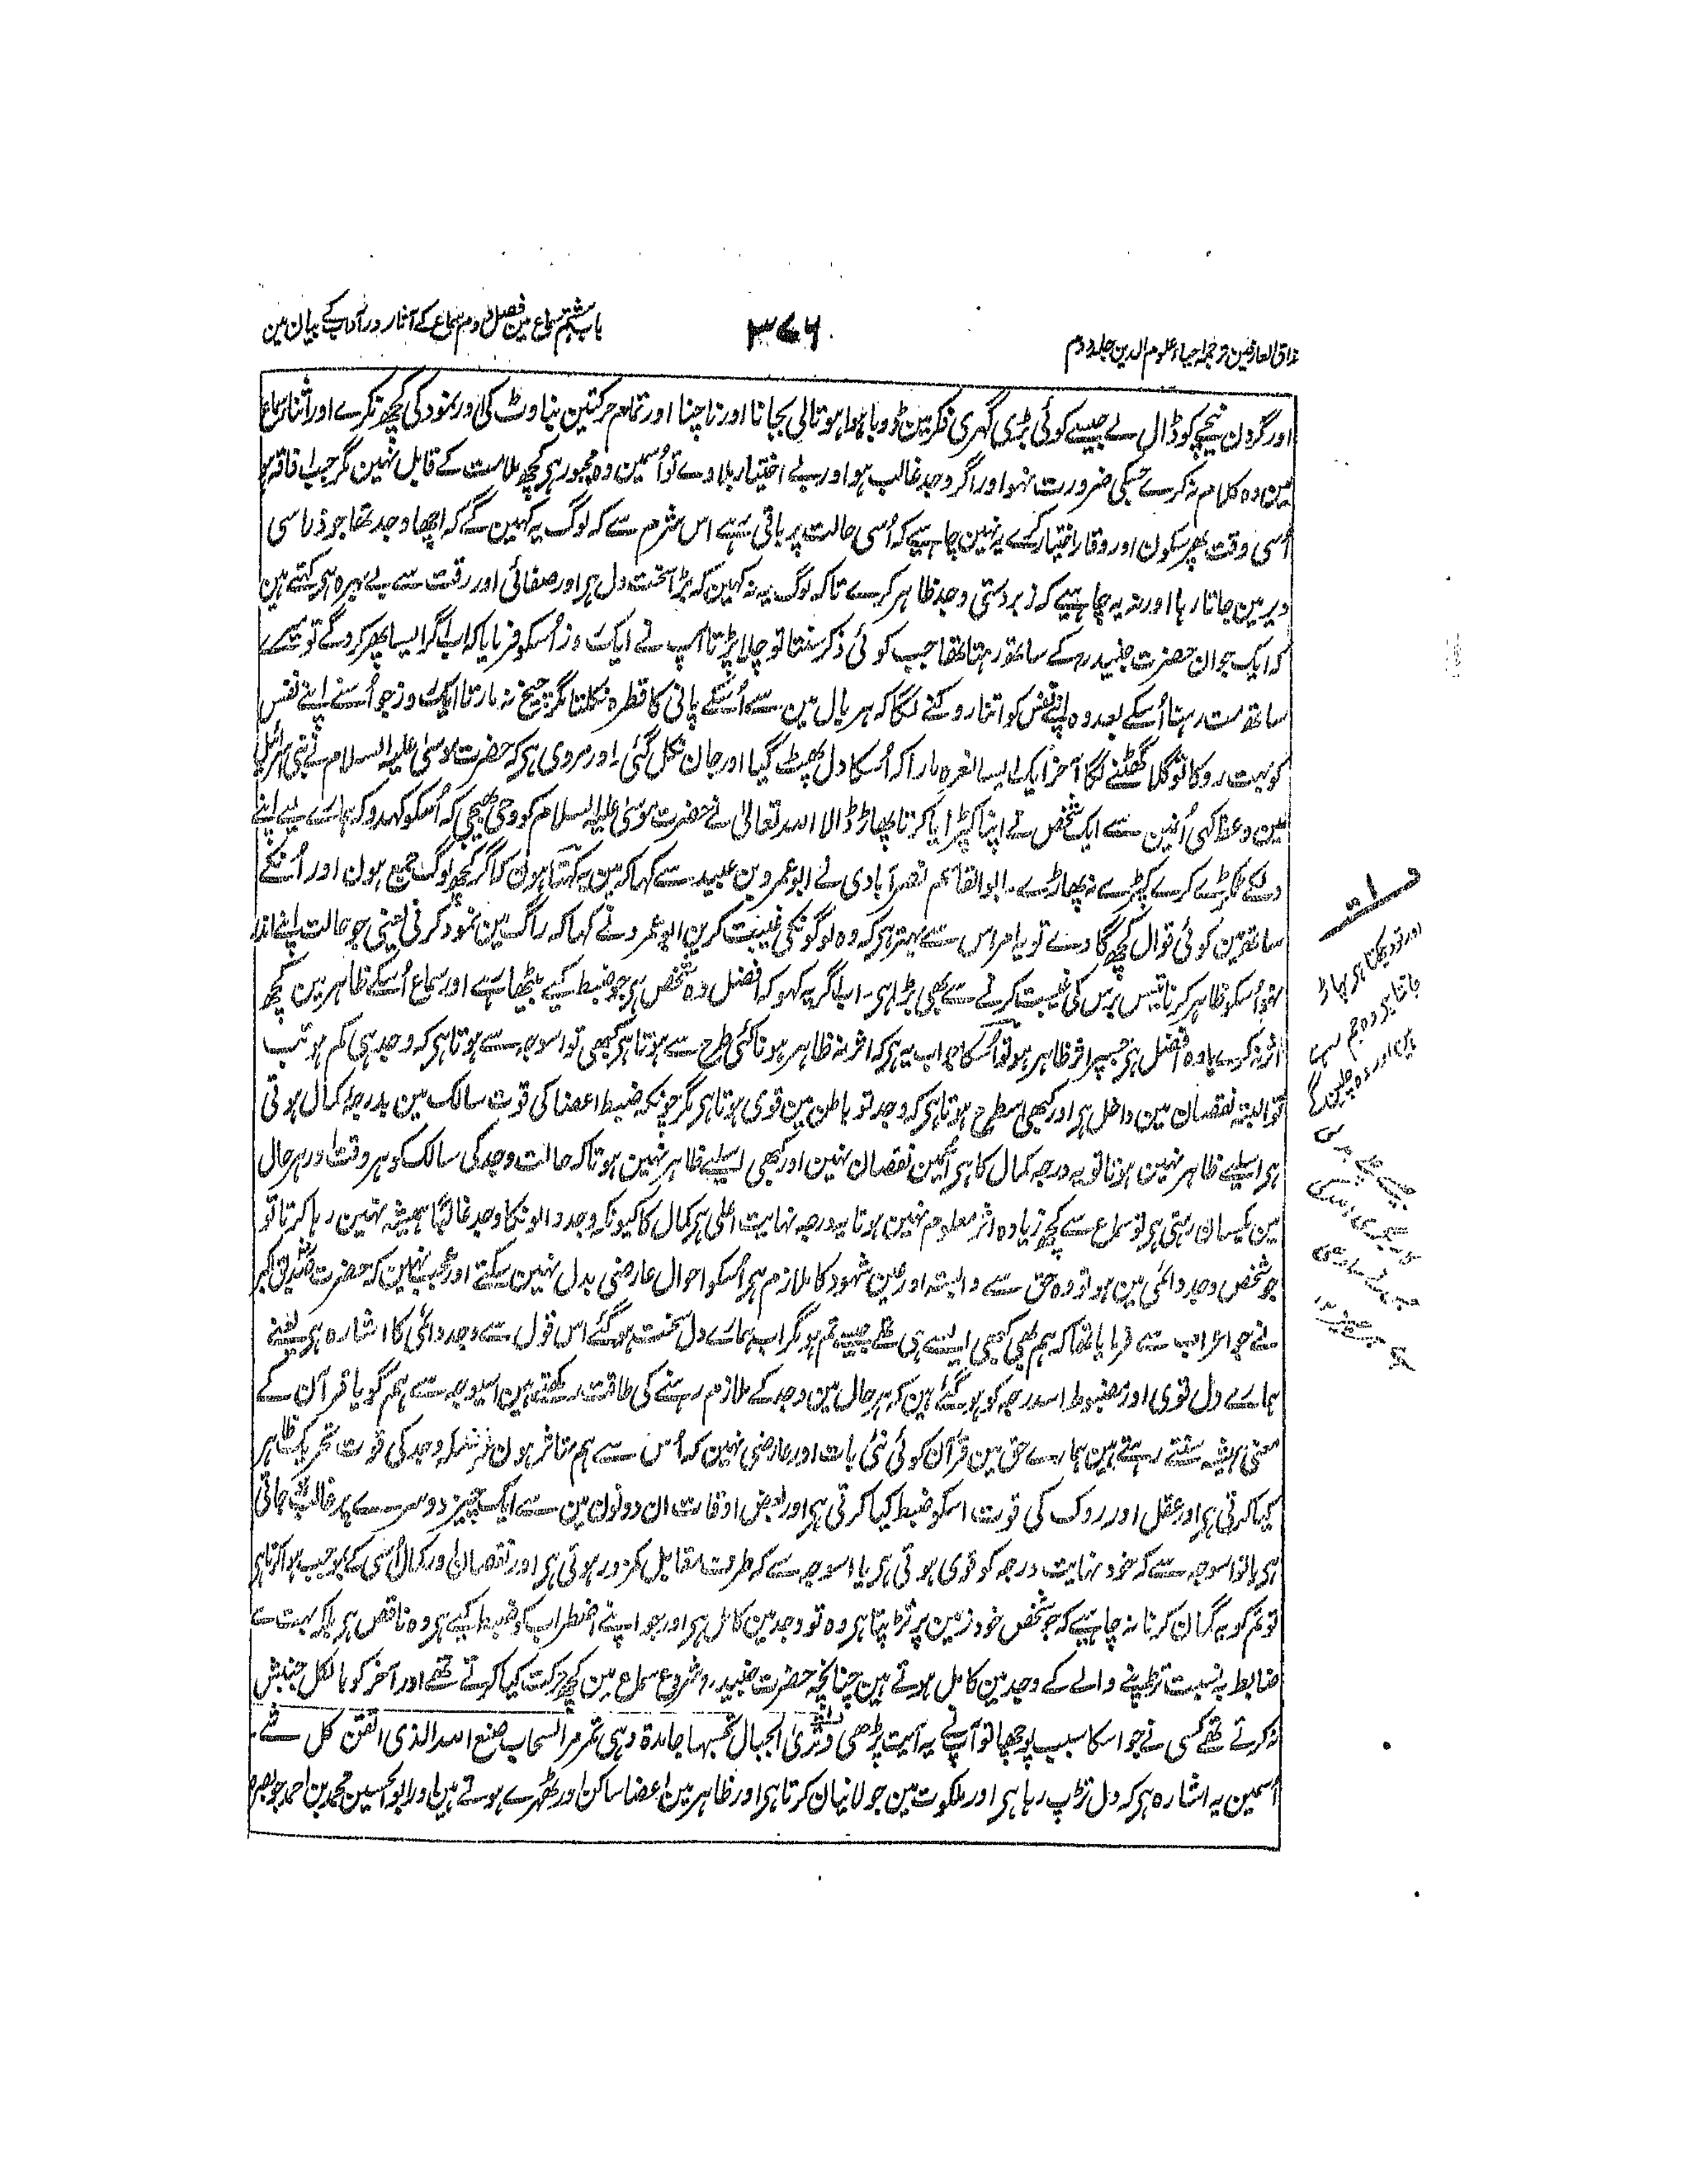 مذاق العارفین ترجمہ احیاء علوم الدین جلد دوم
۳۷۶
باب ہشتم سماع مین فصل دوم سماع کے آثار اور آداب کے بیان مین
اور گردن نیچے کو ڈال لے جیسے کوئی بڑی گہری فکر مین ڈوبا ہوا ہو تالی بجانا اور ناچنا اور تمام حرکتین بناوٹ کی اور نمود کی کچھ نکرے اور اثناء سماع
مین وہ کلام نہ کرے جسکی ضرورت نہو اور اگر وجد غالب ہو اور بے اختیار ہلاوے تو اُسمین وہ مجبور ہی کچھ ملامت کے قابل نہین مگر جب افاقہ ہو
اُسی وقت پھر سکون اور وقار اختیار کرے یہ نہین چاہیے کہ اُسی حالت پر باقی رہے اس شرم سے کہ لوگ یہ کہین گے کہ اچھا وجد تھا جو ذرا سی
دیر مین جاتا رہا اور نہ یہ چاہیے کہ زبردستی وجد ظاہر کرے تاکہ لوگ یہ نہ کہین کہ بڑا سخت دل ہی اور صفائی اور رقت سے بے بہرہ ہی کہتے ہین
کہ ایک جوان حضرت جنید رہ کے ساتھ رہتا تھا جب کوئی ذکر سنتا تو چلا پڑتا آپ نے ایک روز اُسکو فرمایا کہ اب اگر ایسا پھر کروگے تو میرے
ساتھ مت رہنا اُسکے بعد وہ اپنے نفس کو اتنا روکنے لگا کہ ہر بال مین سے اُسکے پانی کا قطرہ نکلتا مگر چیخ نہ مارتا ایک روز جو اُسنے اپنے نفس
کو بہت روکا تو گلا گھٹنے لگا آخر ایک ایسا نعرہ مارا کہ اُسکا دل پھٹ گیا اور جان نکل گئی ۔ اور مروی ہی کہ حضرت موسیٰ علیہ السلام نے بنی اسرائیل
مین وعظ کہی اُنمین سے ایک شخص نے اپنا کپڑا یا کرتا پھاڑ ڈالا اللہ تعالیٰ نے حضرت موسیٰ علیہ السلام کو وحی بھیجی کہ اُسکو کہدو کہ ہمارے لیے اپنے
دلکے ٹکڑے کرے کپڑے نہ پھاڑے ۔ ابو القاسم نصر آبادی نے ابو عمرو بن عبید سے کہا کہ مین یہ کہتا ہون کہ اگر کچھ لوگ جمع ہون اور اُنکے
ساتھ مین کوئی قوال کچھ گاوے تو یہ امر اس سے بہتر ہی کہ وہ لوگونکی غیبت کرین ابو عمرو نے کہا کہ راگ مین نمود کرنی یعنی جو حالت اپنے اندر
نہو اُسکو ظاہر کرنا تیس برس کی غیبت کرنے سے بھی بڑا ہی ۔ اب اگر یہ کہو کہ افضل وہ شخص ہی جو ضبط کیے بیٹھا رہے اور سماع اُسکے ظاہر مین کچھ
اثر نہ کرے یا وہ افضل ہی جسپر اثر ظاہر ہو تو اُسکا جواب یہ ہی کہ اثر نہ ظاہر ہونا کئی طرح سے ہوتا ہی کبھی تو اسوجہ سے ہوتا ہی کہ وجد ہی کم ہو تب
تو البتہ نقصان مین داخل ہی اور کبھی اسطرح ہوتا ہی کہ وجد تو باطن مین قوی ہوتا ہی مگر چونکہ ضبط اعضا کی قوت سالک مین بدرجہ کمال ہوتی
ہی اسلیے ظاہر نہین ہوتا تو یہ درجہ کمال کا ہی اسمین نقصان نہین اور کبھی اسلیے ظاہر نہین ہوتا کہ حالت وجد کی سالک کو ہر وقت اور ہر حال
مین یکسان رہتی ہی تو سماع سے کچھ زیادہ اثر معلوم نہین ہوتا یہ درجہ نہایت اعلی ہی کمال کا کیونکہ وجد والونکا وجد غالبًا ہمیشہ نہین رہا کرتا تو
جو شخص وجد دائمی مین ہو تو وہ حق سے وابستہ اور عین شہود کا ملازم ہی اُسکو احوال عارضی بدل نہین سکتے اور عجب نہین کہ حضرت صدیق اکبر
نے جو اعراب سے فرمایا تھا کہ ہم بھی کبھی ایسے ہی تھے جیسے تم ہو مگر اب ہمارے دل سخت ہو گئے اس قول سے وجد دائمی کا اشارہ ہی یعنے
ہمارے دل قوی اور مضبوط اسدرجہ کو ہو گئے ہین کہ ہر حال مین وجد کے ملازم رہنے کی طاقت رکھتے ہین اسیوجہ سے ہم گویا قرآن کے
معنی ہمیشہ سنتے رہتے ہین ہمارے حق مین قرآن کوئی نئی بات اور عارضی نہین کہ اُس سے ہم متاثر ہون غرضکہ وجد کی قوت تحریک ظاہر
کیا کرتی ہی اور عقل اور روک کی قوت اسکو ضبط کیا کرتی ہی اور بعض اوقات ان دونون مین سے ایک چیز دوسرے پر غالب ہو جاتی
ہی یا تو اسوجہ سے کہ خود نہایت درجہ کو قوی ہوتی ہی یا اسوجہ سے کہ طرف مقابل کمزور ہوتی ہی اور نقصان اور کمال اُسی کے بموجب ہوا کرتا ہی
تو تمکو یہ گمان کرنا نہ چاہیے کہ جو شخص خود زمین پر تڑپتا ہی وہ تو وجد مین کامل ہی اور جو اپنے اضطراب کو ضبط کیے ہی وہ ناقص ہی بلکہ بہت سے
ضابط بہ نسبت تڑپنے والے کے وجد مین کامل ہوتے ہین چنانچہ حضرت جنید رہ شروع سماع مین کچھ حرکت کیا کرتے تھے اور آخر کو بالکل جنبش
نہ کرتے تھے کسی نے جو اسکا سبب پوچھا تو آپ نے یہ آیت پڑھی وتریٰ الجبال تحسبہا جامدۃ وہی تمر مر السحاب صنع اللہ الذی اتقن کل شئے ۔
اُسمین یہ اشارہ ہی کہ دل تڑپ رہا ہی اور ملکوت مین جولانیان کرتا ہی اور ظاہر مین اعضا ساکن اور ٹھہرے ہوتے ہین اور ابو الحسین محمد بن احمد جو بصرہ
اور تو دیکھتا ہی پہاڑ
جانتا ہی وہ جم رہے
ہین اور وہ چلین گے
جیسے چلے بدلی